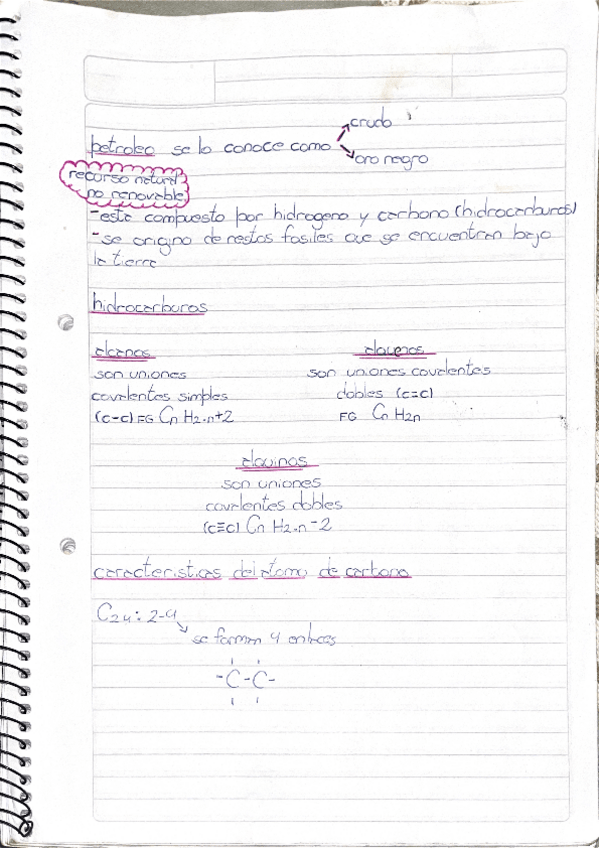 crudo
petroleo se lo conoce como
oro negro
recurso natural
no renovable
-esta compuesto por hidrogeno y carbono (hidrocarburos)
-se origino de restos fosiles que se encuentran bajo
la tierra
hidrocarburos
alcanos
son uniones
covalentes simples
(c-c) FG Cn H2.n+2
alquenos
son uniones covalentes
dobles (c=c)
FG Cn H2n
alquinos
son uniones
covalentes dobles
(c≡c) Cn H2.n-2
caracteristicas del atomo de carbono
C24: 2-4
se forman 4 enlaces
-C-C-